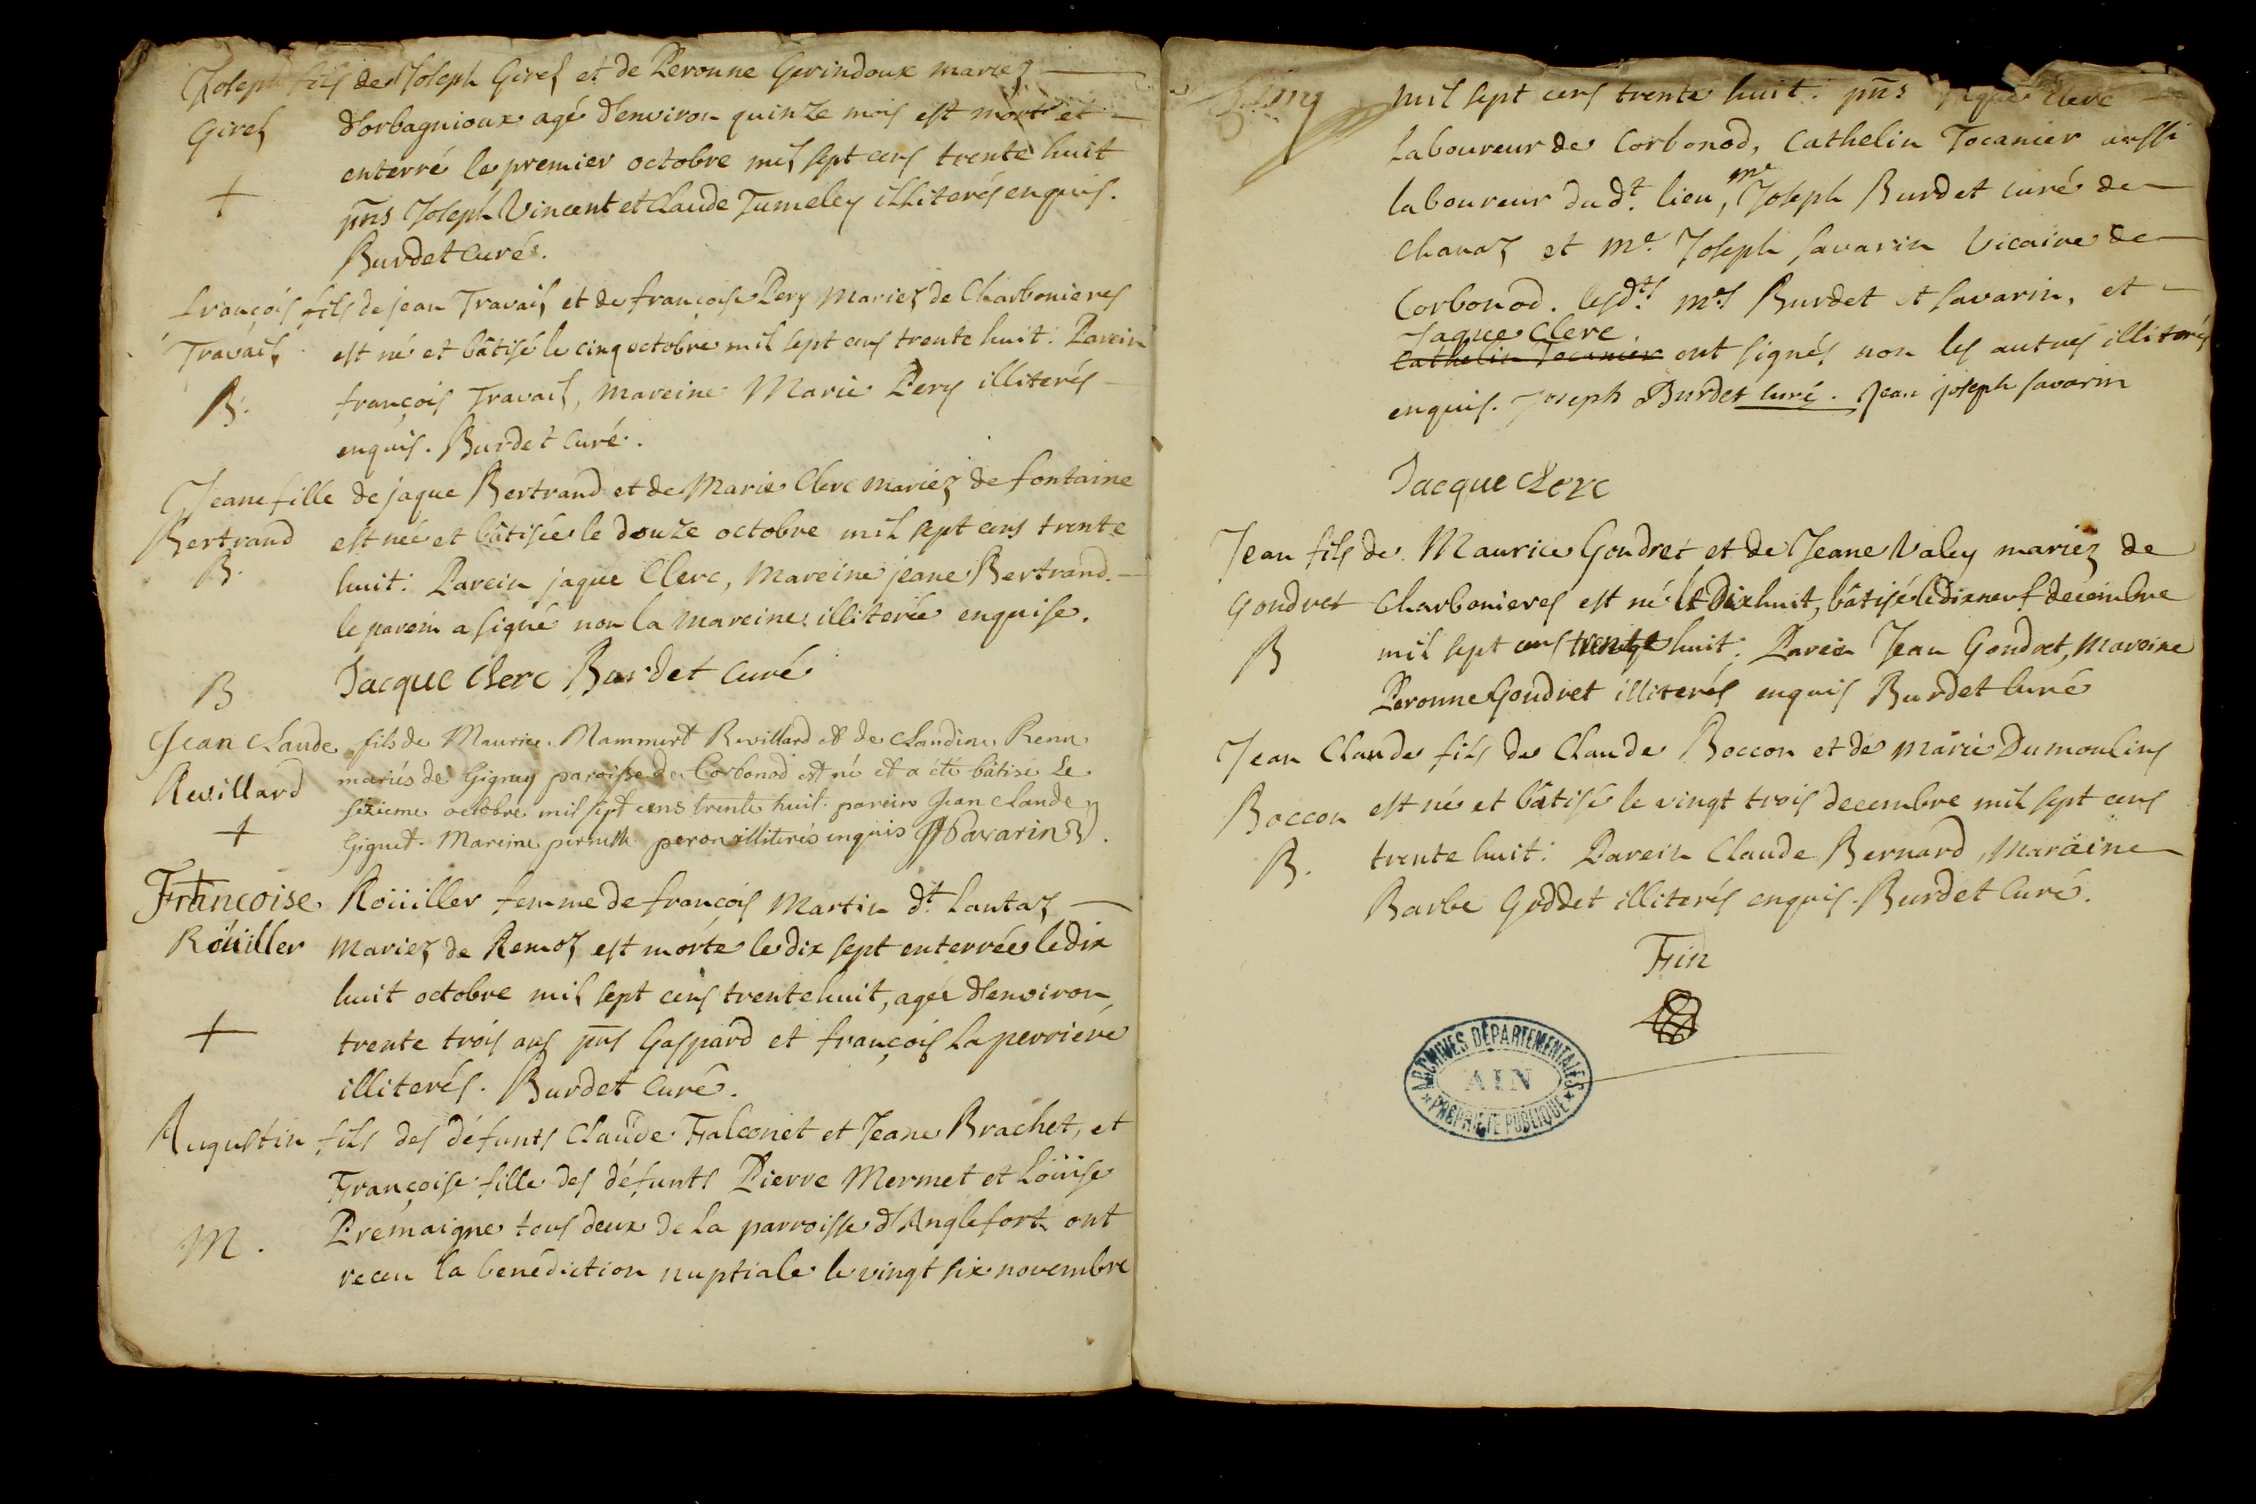 Joseph fils de Joseph Giref et de Peronne Gerindoux mariez
Giref d'orbagnioux agé d'environ quinze mois est mort et
enterré le premier octobre mil sept cens trente huit
+ pn̄s Joseph Vincent et Claude Tumeley illiterés enquis.
Burdet Curé.
François fils de jean Travail et de françoise Pery Mariez de Charbonieres
Travail est né et bâtisé le cinq octobre mil sept cens trente huit. Parein
B. françois Travail, mareine Marie Pery illiterés
enquis. Burdet Curé.
Jeane fille de jaque Bertrand et de Marie Clerc mariez de fontaine
Bertrand est née et bâtisée le douze octobre mil sept cens trente
B. huit. Parein jaque Clerc, Mareine jeane Bertrand.
le parein a signé non la mareine illiterée enquise.
Jacque Clerc Burdet Curé
B
Jean Claude fils de Maurice Mammert Revillard et de Claudine Renn
Revillard mariés de Gignay paroisse de Corbonod est né et a été bâtisé Le
sezieme octobre mil sept cens trente huit parein Jean Claude
+ Gignet. Mareine pernette peron illiterés enquis JJSavarin V.
Francoise Roüiller femme de françois Martin dt. Lantaz
Roüiller Mariez de Remoz est morte le dix sept enterrée le dix
huit octobre mil sept cens trente huit, agée d'environ
+ trente trois ans pn̄s Gaspard et françois Laperriere
illiterés. Burdet Curé.
Augustin fils des défunts Claude Falconet et Jeane Brachet, et
Françoise fille des défunts Pierre Mermet et Loüise
M. Premaigne tous deux de la parroisse d'Anglefort ont
receu la benédiction nuptiale le vingt six novembre
mil sept cens trente huit. pn̄s Jaque Clerc
Laboureur de Corbonod, Cathelin Tocanier aussi
laboureur du dt. lieu, me Joseph Burdet curé de
Chanaz et me. Joseph Savarin Vicaire de
Corbonod. lesdts mes Burdet et Savarin, et
Jaque Clerc
Cathelin Tocanier ont signés non les autres illiterés
enquis. Joseph Burdet Curé. Jean joseph Savarin
Jacque Clerc
Jean fils de Maurice Goudret et de Jeane Valey mariez de
Goudret Charbonieres est né le Dixhuit, bâtisé le dixneuf decembre
B mil sept cens trente huit. Parein Jean Goudret, Mareine
Peronne Goudret illiterés enquis Burdet Curé
Jean Claude fils de Claude Boccon et de Marie Dumoulins
Boccon est né et bâtisé le vingt trois decembre mil sept cens
B. trente huit. Parein Claude Bernard, Maraine
Barbe Goddet illiterés enquis. Burdet Curé.
Fin
ARCHIVES DÉPARTEMENTALES
AIN
PROPRIÉTÉ PUBLIQUE